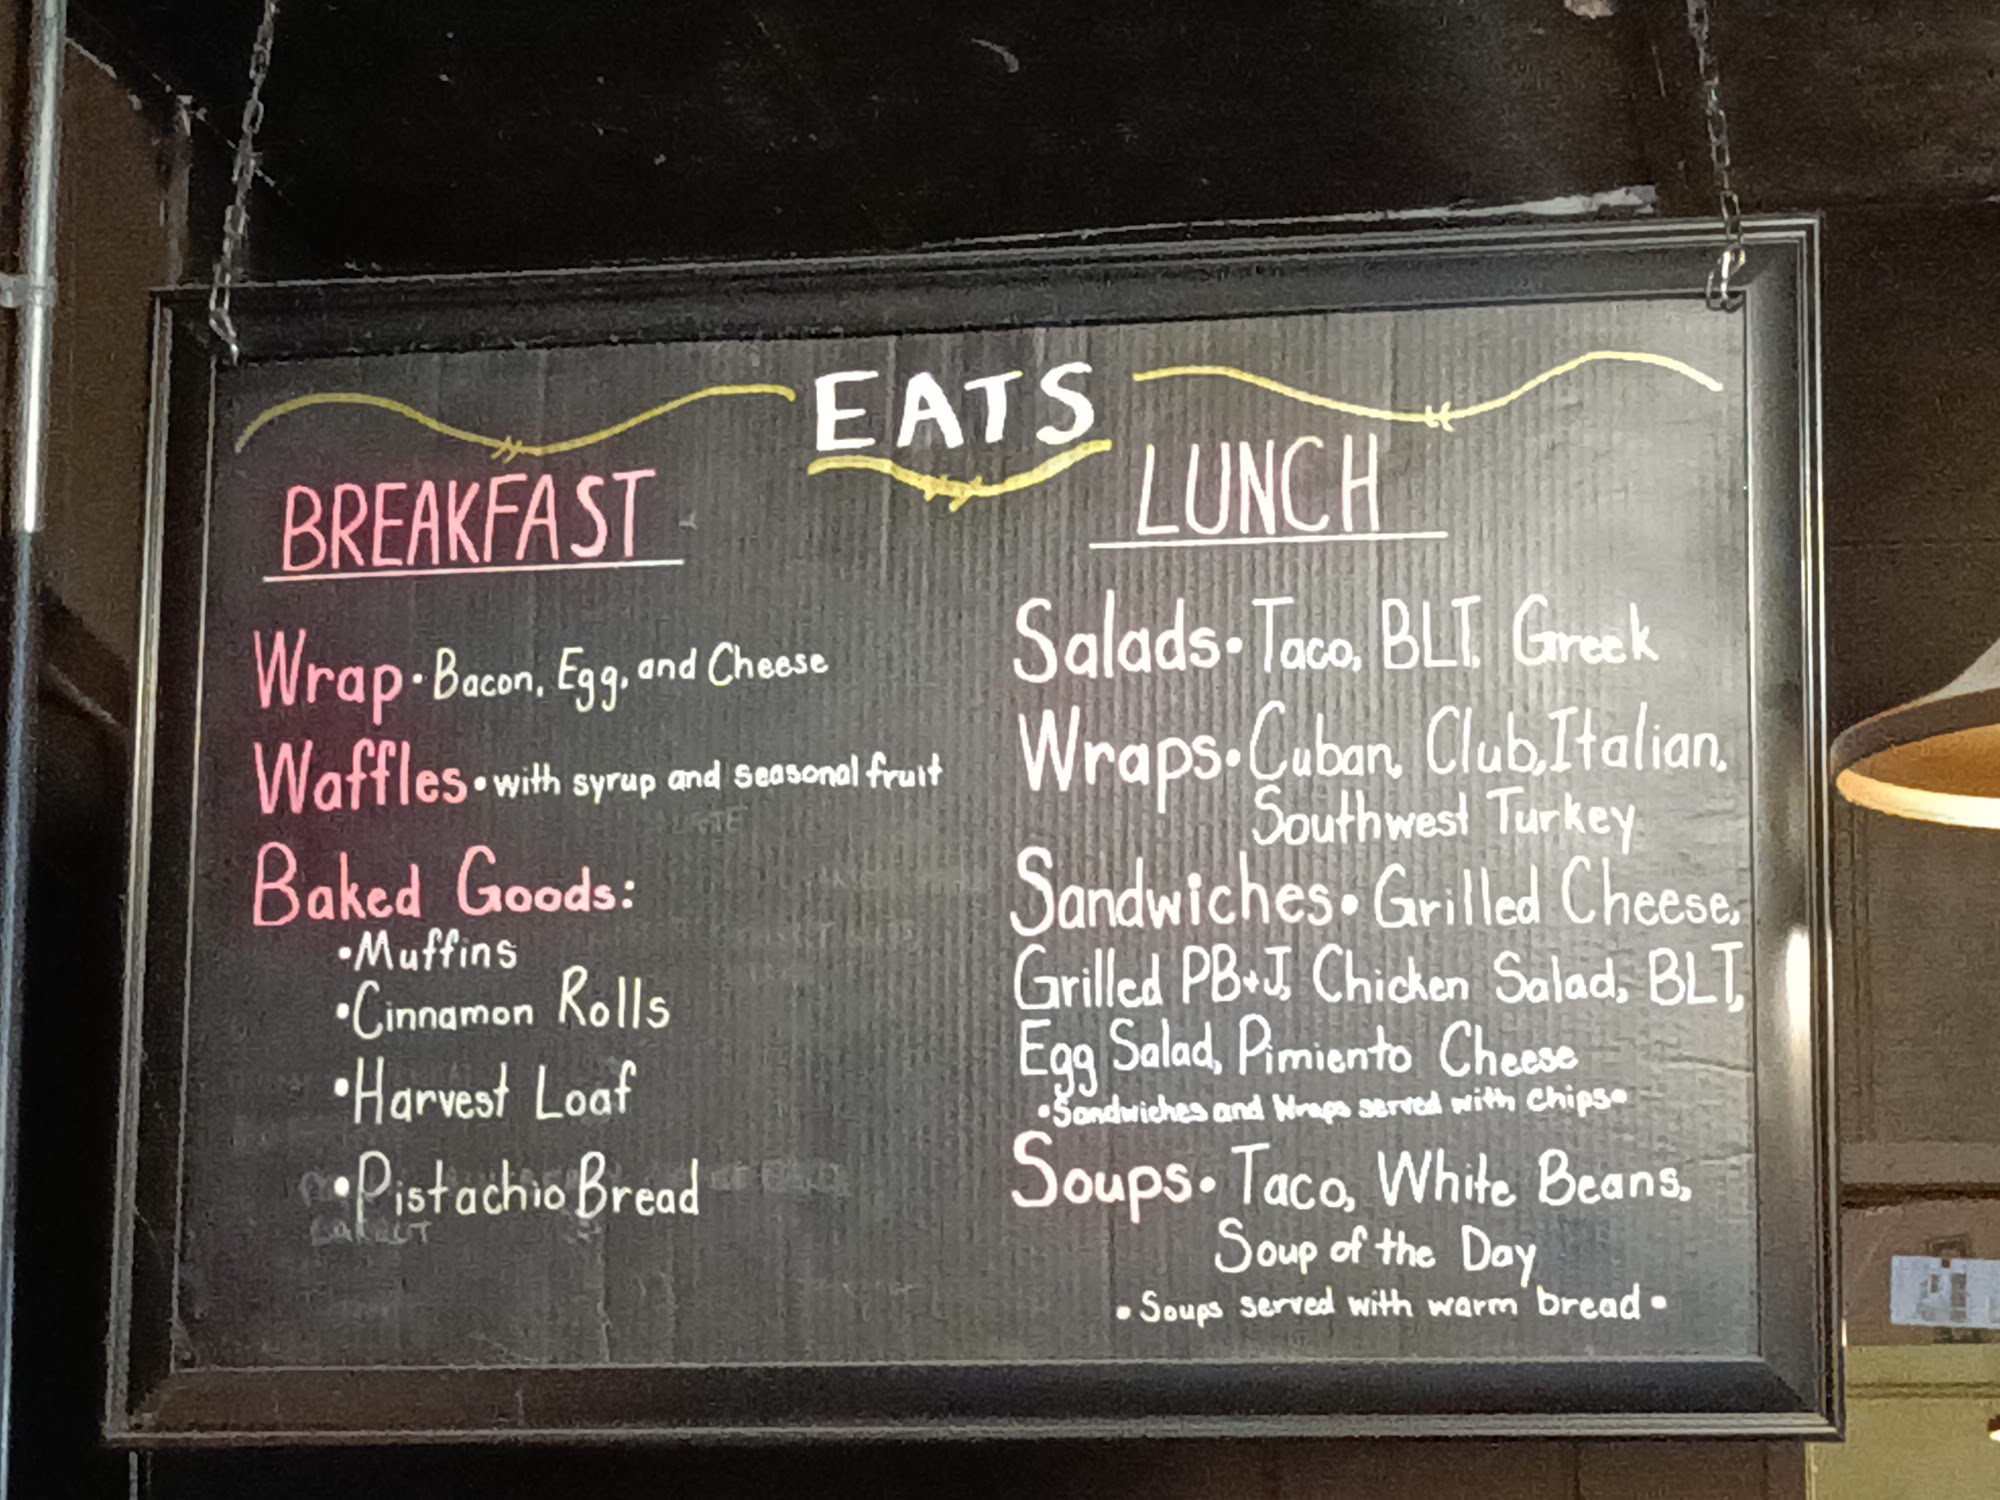 EATS
BREAKFAST
Wrap • Bacon, Egg, and Cheese
Waffles • with syrup and seasonal fruit
Baked Goods:
• Muffins
• Cinnamon Rolls
• Harvest Loaf
• Pistachio Bread
LUNCH
Salads • Taco, BLT, Greek
Wraps • Cuban, Club, Italian,
Southwest Turkey
Sandwiches • Grilled Cheese,
Grilled PB+J, Chicken Salad, BLT,
Egg Salad, Pimiento Cheese
• Sandwiches and Wraps served with chips •
Soups • Taco, White Beans,
Soup of the Day
• Soups served with warm bread •